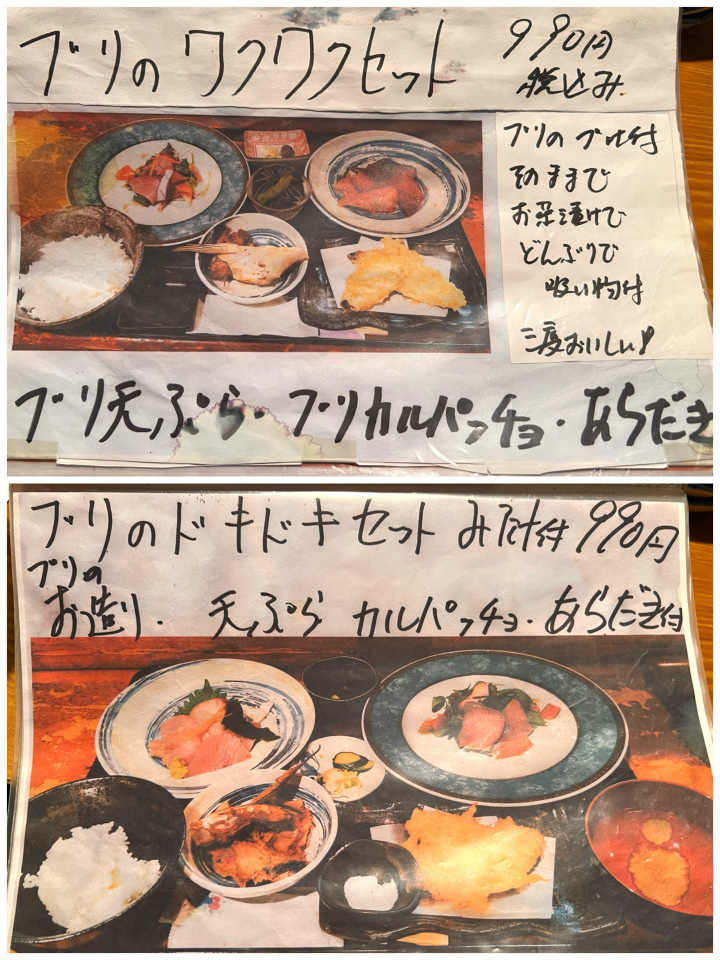 ブリのワクワクセット
990円
税込み
ブリのヅケ付
そのままで
お茶漬けで
どんぶりで
吸い物付
三度おいしい!
ブリ天ぷら・ブリカルパッチョ・あらだき
ブリのドキドキセットみそ汁付990円
ブリの
お造り・天ぷら カルパッチョ・あらだき付